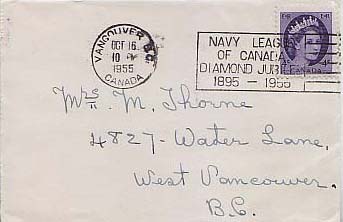 VANCOUVER B.C.
OCT 16
10 PM
1955
CANADA
NAVY LEAGUE
OF CANADA
DIAMOND JUBILEE
1895 - 1955
CANADA
Mrs. M. Thorne
4827- Water Lane,
West Vancouver.
B.C.